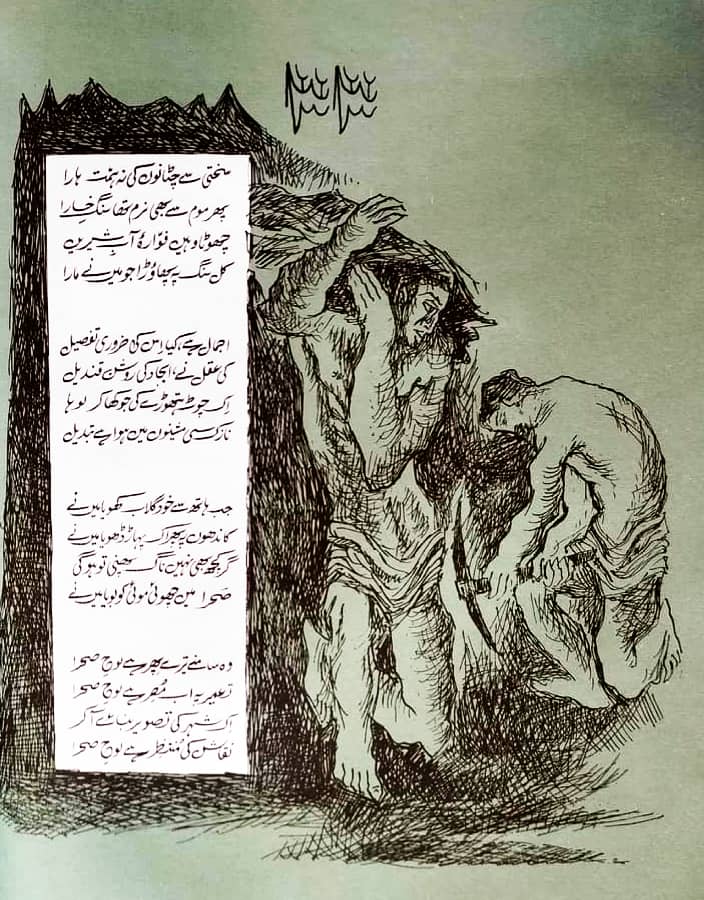 سختی سے چٹانوں کی نہ ہمت ہارا
پھر موم سے بھی نرم تھا سنگِ خارا
چھوٹا وہیں فوّارۂ آبِ شیریں
کل سنگ پہ پھاوڑا جو میں نے مارا
اجمال ہے، کیا اس کی ضروری تفصیل
کی عقل نے، ایجاد کی روشن قندیل
اک چوٹ ہتھوڑے کی جو کھا کر لوہا
نازک سی مشینوں میں ہوا ہے تبدیل
جب ہاتھ سے خود گلاب کھویا میں نے
کاندھوں پہ پھر اک پہاڑ ڈھویا میں نے
گر کچھ بھی نہیں ناگ پھنی تو ہوگی
صحرا میں چھوئی موئی کو بویا میں نے
وہ سامنے تیرے پھر ہے لوحِ صحرا
تعمیر پہ اب مُصر ہے لوحِ صحرا
اک شہر کی تصویر بنائے آ کر
نقاش کی منتظر ہے لوحِ صحرا